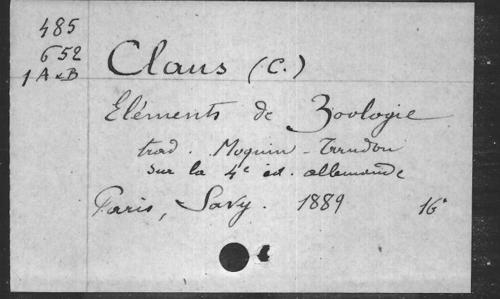 485
652
1 A & B
Claus (C.)
Eléments de Zoologie
trad. Moquin-Tandon
sur la 4e ed. allemande
Paris, Savy. 1889 16°